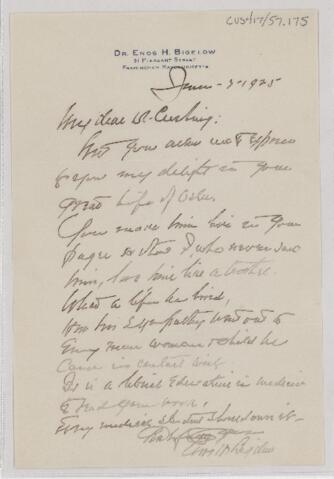 CUS/17/57.175
DR. ENOS H. BIGELOW
FRAMINGHAM, MASSACHUSETTS
June - 7 - 1925
My dear Dr. Cushing:
you my delight in your
great Life of Osler.
You made him live in your
pages so that I, who never saw
him, love him like a brother.
What a life he lived,
How his sympathy went out to
Every man woman & child he
Came in contact with
It is a liberal Education in medicine
to read your book,
Every medical student should own it -
Enos H Bigelow